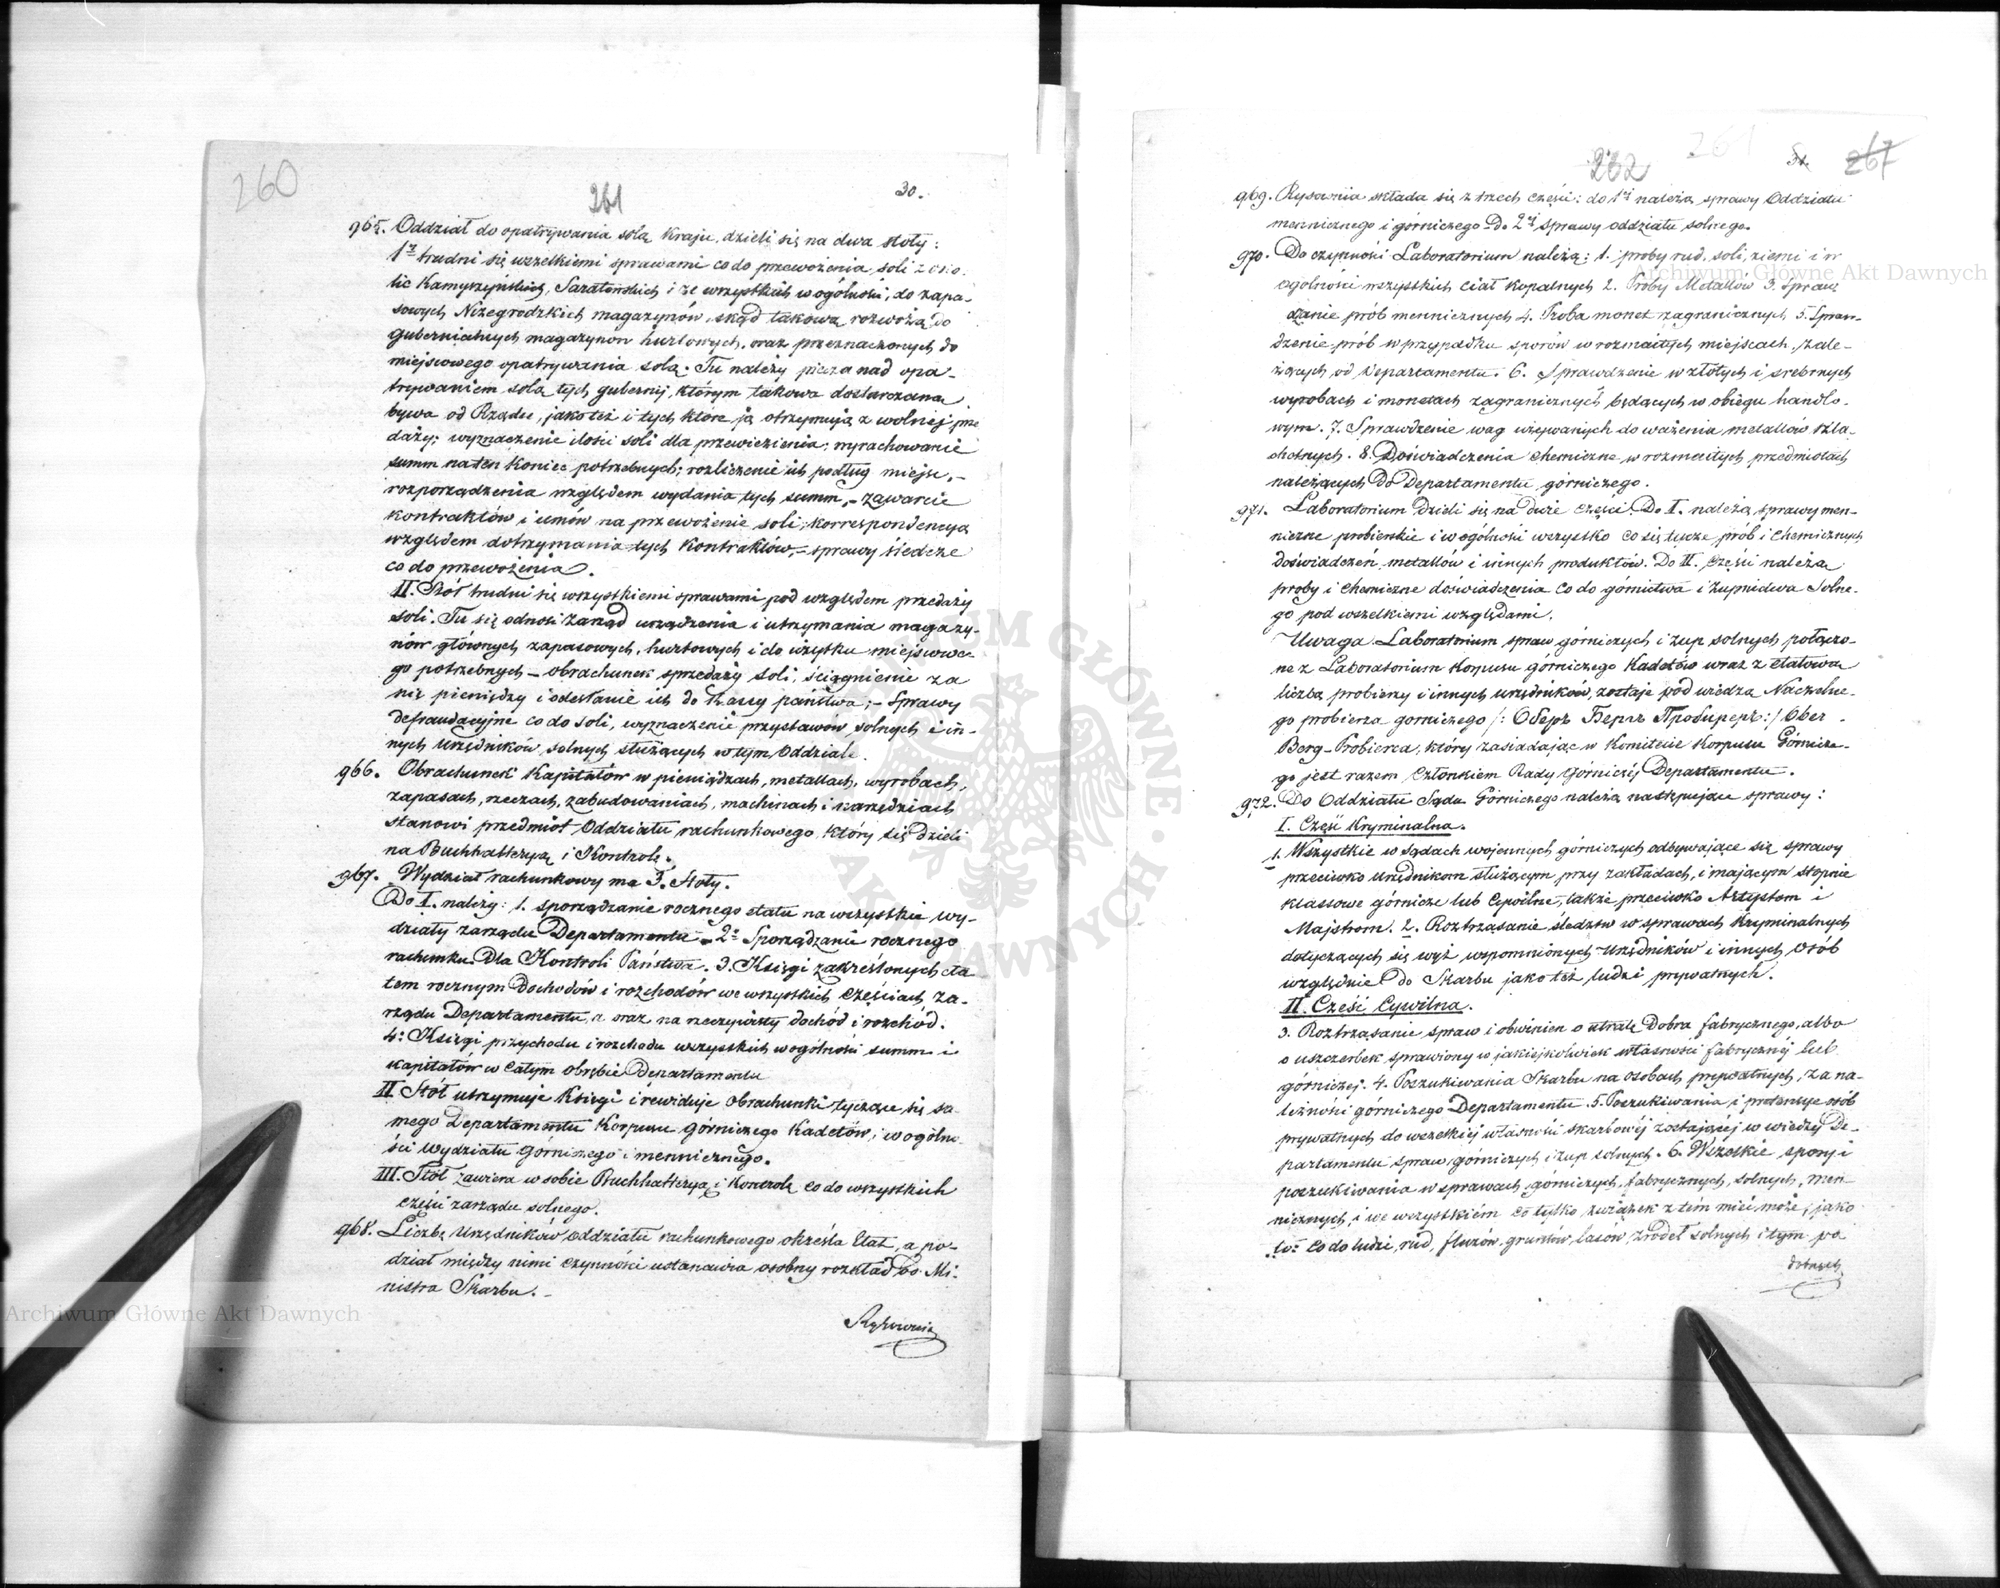 260
261
30.
965. Oddział do opatrywania solą Kraju, dzieli się na dwa stoły:
1y trudni się wszelkiemi sprawami co do przewożenia soli z oko-
lic Kamyszyńskich, Saratowskich i ze wszystkich w ogólności, do zapa-
sowych Niżegrodzkich magazynów, skąd takową rozwożą do
gubernialnych magazynów hurtowych, oraz przeznaczonych do
miejscowego opatrywania solą. Tu należy piecza nad opa-
trywaniem solą tych gubernij, którym takowa dostarczana
bywa od Rządu, jako też i tych które ją otrzymują z wolnej prze
daży; wyznaczenie ilości soli dla przewiezienia; wyrachowanie
summ na ten koniec potrzebnych; rozliczenie ich podług miejsc,-
rozporządzenia względem wydania tych summ,- zawarcie
kontraktów i umów na przewożenie soli; korrespondencya
względem dotrzymania tych kontraktów,- sprawy śledcze
co do przewożenia.
II. Stół trudni się wszystkiemi sprawami pod względem przedaży
soli. Tu się odnosi zarząd urządzenia i utrzymania magazy-
nów głównych zapasowych, hurtowych i do użytku miejscowe-
go potrzebnych - obrachunek sprzedaży soli, ściągnienie za
nię pieniędzy i odesłanie ich do Kassy państwa;- sprawy
defraudacyjne co do soli, wyznaczenie przystawów solnych i in-
nych urzędników solnych służących w tym Oddziale.
966. Obrachunek Kapitałów w pieniądzach, metallach, wyrobach,
zapasach, rzeczach, zabudowaniach, machinach i narzędziach
stanowi przedmiot Oddziału rachunkowego, który się dzieli
na Buchhalteryą i Kontrolę.
967. Wydział rachunkowy ma 3. Stoły.
Do I. należy: 1. sporządzanie rocznego etatu na wszystkie wy-
działy zarządu Departamentu - 2: Sporządzanie rocznego
rachunku dla Kontroli Państwa. 3. Księgi zakreślonych eta
tem rocznym dochodów i rozchodów we wszystkich częściach za-
rządu Departamentu, a oraz na rzeczywisty dochód i rozchód.
4: Księgi przychodu i rozchodu wszystkich w ogólności summ i
kapitałów w całym obrębie Departamentu
II Stół utrzymuje Księgi i rewiduje obrachunki tyczące się sa-
mego Departamentu Korpusu górniczego Kadetów, i w ogólno
ści Wydziału Górniczego i menniczego.
III. Stół zawiera w sobie Buchhalteryą i Kontrolę co do wszystkich
części zarządu solnego.
968. Liczbę Urzędników oddziału rachunkowego określa Etat, a po-
dział między nimi czynności ustanawia osobny rozkład Mi-
nistra Skarbu.-
Rysownia
262
261
267
969. Rysownia składa się z trzech części: do 1éj należą sprawy Oddziału
mennicznego i górniczego Do 2éj sprawy oddziału solnego.
970. Do czynności Laboratorium należą: 1. proby rud, soli, ziemi i w
ogólności wszystkich ciał kopalnych 2. Próby Metallów 3. Spraw
dzanie prób mennicznych 4. Próba monet zagranicznych 5. Spraw-
dzenie prób w przypadku sporów w rozmaitych miejscach, zale-
żących od Departamentu. 6. Sprawdzenie w złotych i srebrnych
wyrobach i monetach zagranicznych będących w obiegu handlo-
wym. 7. Sprawdzenie wag używanych do ważenia metallów szla-
chetnych. 8. Doświadczenia chemiczne w rozmaitych przedmiotach
należących do Departamentu górniczego.
971. Laboratorium dzieli się na dwie części. Do I. należą sprawy men-
niczne probierskie i w ogólności wszystko co się tycze prób i chemicznych
doświadczeń metallów i innych produktów. Do II. części należą
proby i chemiczne doświadczenia co do górnictwa i żupnictwa Solne-
go pod wszelkiemi względami.
Uwaga Laboratorium spraw górniczych i żup solnych połączo-
ne z Laboratorium Korpusu górniczego Kadetów wraz z etatową
liczbą probierzy i innych urzędników, zostaje pod wiedzą Naczelne-
go probierza gorniczego /: Оберъ Бергъ Пробиреръ:/ Ober -
Berg-Probierca, który zasiadając w Komitecie Korpusu Górnicze-
go jest razem Członkiem Rady Górniczéj Departamentu.
972. Do Oddziału Sądu Górniczego należą następujące sprawy:
I. Część Kryminalna.
1. Wszystkie w Sądach wojennych górniczych odbywające się sprawy
przeciwko urzędnikom służącym przy zakładach, i mającym stopnie
klassowe górnicze lub Cywilne, także przeciwko Artystom i
Majstrom. 2. Roztrząsanie śledztw w sprawach Kryminalnych
dotyczących się wyż wspomnionych Urzędników i innych osób
względnie do Skarbu jako też ludzi prywatnych.
II. Cześć Cywilna.
3. Roztrząsanie spraw i obwinień o utratę Dobra fabrycznego, albo
o uszczerbek sprawiony w jakiejkolwiek własności fabrycznéj lub
górniczej. 4. Poszukiwania Skarbu na osobach prywatnych, za na-
leżności górniczego Departamentu. 5. Poszukiwania i pretensye osób
prywatnych do wszelkiéj własności skarbowéj zostającéj w wiedzy De-
partamentu spraw górniczych i żup solnych. 6. Wszelkie spory i
poszukiwania w sprawach górniczych, fabrycznych, solnych, men-
nicznych, i we wszystkiém co tylko związek z tém mieć może, jako
to: co do ludzi, rud, fluzów, gruntów, lasów, źródeł solnych i tym po
dobnych
ARCHIWUM GŁÓWNE · AKT DAWNYCH ·
Archiwum Główne Akt Dawnych
Archiwum Główne Akt Dawnych